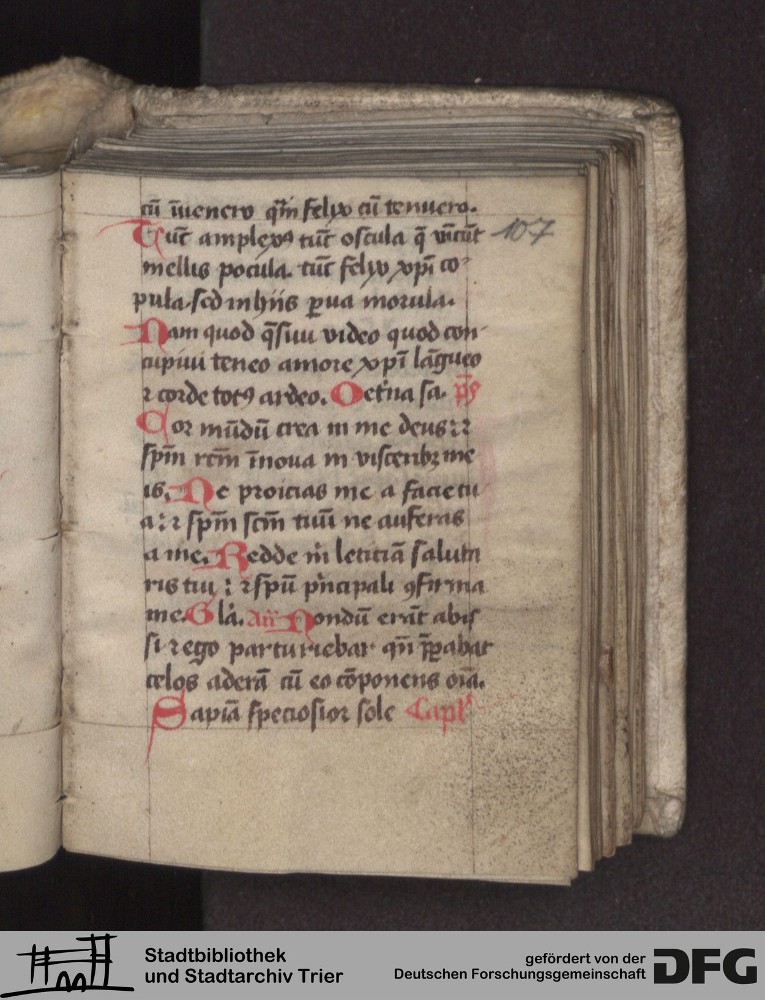 cū īuenero qm̄ felix cū tenuero.
Tūc amplexꝯ tūc oscula q̄ vīcūt
107
mellis pocula. tūc felix xp̄i co
pula. sed in hiis ꝑua morula.
Nam quod q̄siui video quod con
cupiui teneo amore xp̄i lāgueo
⁊ corde totꝯ ardeo. O et͛na sa. p̄s
Cor mūdū crea in me deus: ⁊
sp̄m rcm̄ īnoua in visceribꝫ me
is. Ne proicias me a facie tu
a: ⁊ sp̄m scm̄ tuū ne auferas
a me. Redde m̄ leticiā saluta
ris tui: ⁊ sp̄u p̄ncipali ꝯfirma
me. Gl̄a. Añ Nondū erāt abis
si ⁊ ego parturiebar qn̄ p̄ꝑabat
celos aderā cū eo cōponens oīa.
Sapīa speciosior sole Capl̄
Stadtbibliothek
und Stadtarchiv Trier
gefördert von der
Deutschen Forschungsgemeinschaft
DFG